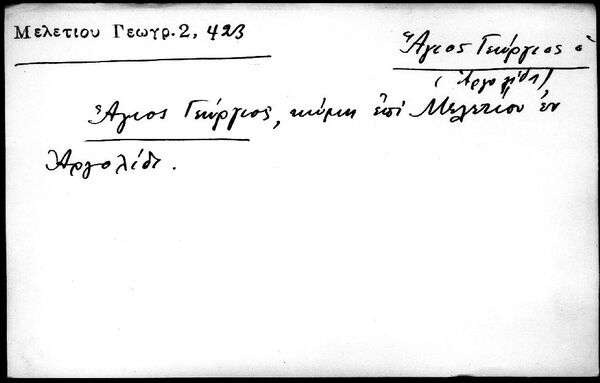 Μελετίου Γεωγρ. 2, 423
Ἅγιος Γεώργιος ὁ
(Ἀργολίδι)
Ἅγιος Γεώργιος, κώμη ἐπὶ Μελετίου ἐν
Ἀργολίδι.